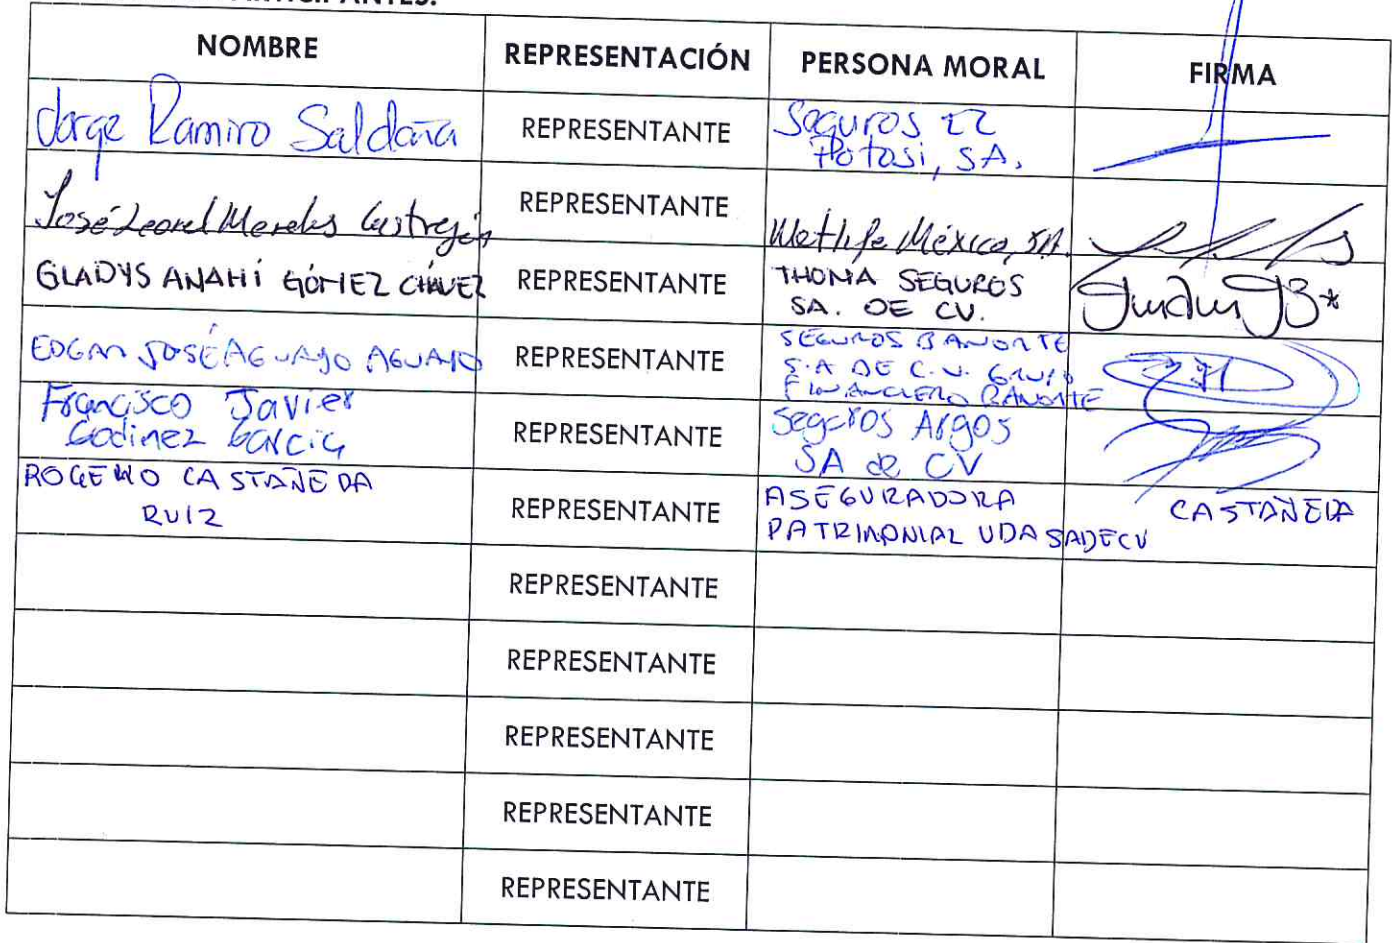 PARTICIPANTES:
NOMBRE REPRESENTACIÓN PERSONA MORAL FIRMA
Jorge Ramiro Saldaña REPRESENTANTE Seguros El
Potosi, SA.
José Leonel Mereles Castrejón REPRESENTANTE Metlife México, SA.
GLADYS ANAHÍ GÓMEZ CHÁVEZ REPRESENTANTE THONA SEGUROS
SA. DE CV.
EDGAR JOSÉ AGUAYO AGUAYO REPRESENTANTE SEGUROS BANORTE
S.A DE C.V. GRUPO
FINANCIERO BANORTE
Francisco Javier
Godinez Garcia REPRESENTANTE Seguros Argos
SA de CV
ROGELIO CASTAÑEDA
RUIZ REPRESENTANTE ASEGURADORA
PATRIMONIAL VIDA SADECV CASTAÑEDA
REPRESENTANTE
REPRESENTANTE
REPRESENTANTE
REPRESENTANTE
REPRESENTANTE